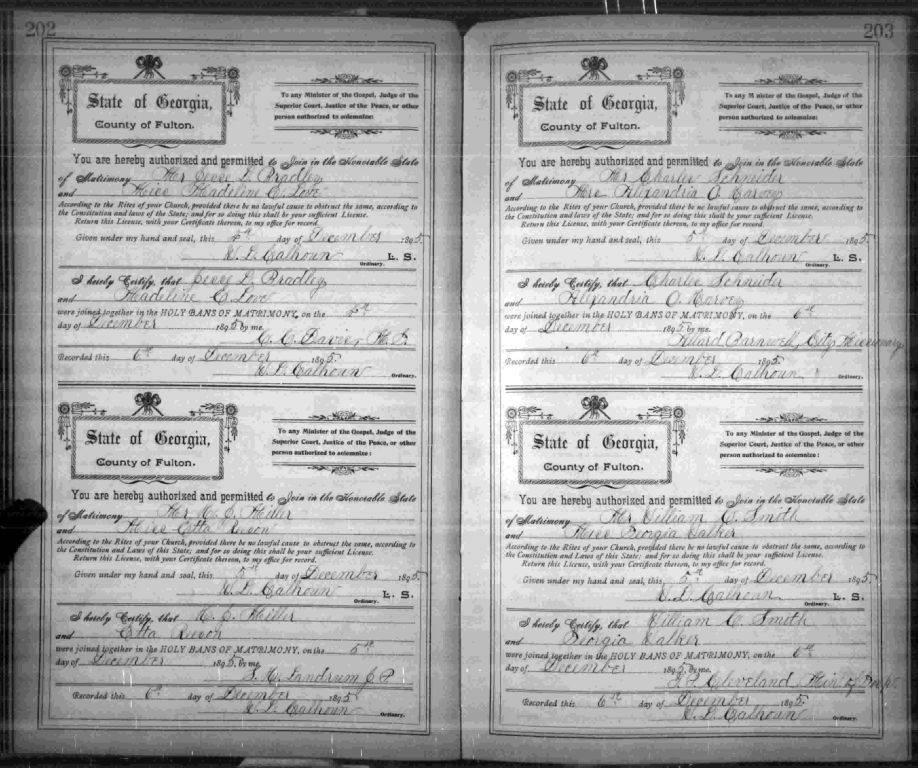 202
State of Georgia,
County of Fulton.
To any Minister of the Gospel, Judge of the
Superior Court, Justice of the Peace, or other
person authorized to solemnize:
You are hereby authorized and permitted to Join in the Honorable State
of Matrimony Mr Jesse L. Bradley
and Miss Madeline C. Love
According to the Rites of your Church, provided there be no lawful cause to obstruct the same, according to
the Constitution and laws of the State; and for so doing this shall be your sufficient License.
Return this License, with your Certificate thereon, to my office for record.
Given under my hand and seal, this 5th day of December 1895.
W. L. Calhoun L. S.
Ordinary.
I hereby Certify, that Jesse L. Bradley
and Madeline C. Love
were joined together in the HOLY BANS OF MATRIMONY, on the 5th
day of December 1895 by me.
C. C. Davis, M. G.
Recorded this 6th day of December 1895.
W. L. Calhoun
Ordinary.
State of Georgia,
County of Fulton.
To any Minister of the Gospel, Judge of the
Superior Court, Justice of the Peace, or other
person authorized to solemnize:
You are hereby authorized and permitted to Join in the Honorable State
of Matrimony Mr Miller
and Miss Etta
According to the Rites of your Church, provided there be no lawful cause to obstruct the same, according to
the Constitution and Laws of this State; and for so doing this shall be your sufficient License.
Return this License, with your Certificate thereon, to my office for record.
Given under my hand and seal, this 5th day of December 1895.
W. L. Calhoun L. S.
Ordinary.
I hereby Certify, that Miller
and Etta
were joined together in the HOLY BANS OF MATRIMONY, on the 5th
day of December 1895. by me.
S. H. Landrum J. P.
Recorded this 6th day of December 1895
W. L. Calhoun
Ordinary.
203
State of Georgia,
County of Fulton.
To any Minister of the Gospel, Judge of the
Superior Court, Justice of the Peace, or other
person authorized to solemnize:
You are hereby authorized and permitted to Join in the Honorable State
of Matrimony Mr Charles Schneider
and Mrs Alexandria O. Harvey
According to the Rites of your Church, provided there be no lawful cause to obstruct the same, according to
the Constitution and laws of the State; and for so doing this shall be your sufficient License.
Return this License, with your Certificate thereon, to my office for record.
Given under my hand and seal, this 5th day of December 1895.
W. L. Calhoun L. S.
Ordinary.
I hereby Certify, that Charles Schneider
and Alexandria O. Harvey
were joined together in the HOLY BANS OF MATRIMONY, on the 6th
day of December 1895 by me.
Allard Barnwell, City Missionary
Recorded this 6th day of December 1895.
W. L. Calhoun
Ordinary.
State of Georgia,
County of Fulton.
To any Minister of the Gospel, Judge of the
Superior Court, Justice of the Peace, or other
person authorized to solemnize:
You are hereby authorized and permitted to Join in the Honorable State
of Matrimony Mr William C. Smith
and Miss Georgia Walker
According to the Rites of your Church, provided there be no lawful cause to obstruct the same, according to
the Constitution and Laws of this State; and for so doing this shall be your sufficient License.
Return this License, with your Certificate thereon, to my office for record.
Given under my hand and seal, this 5th day of December 1895.
W. L. Calhoun L. S.
Ordinary.
I hereby Certify, that William C. Smith
and Georgia Walker
were joined together in the HOLY BANS OF MATRIMONY, on the 6th
day of December 1895. by me.
Cleveland Min of Gospel
Recorded this 6th day of December 1895.
W. L. Calhoun
Ordinary.